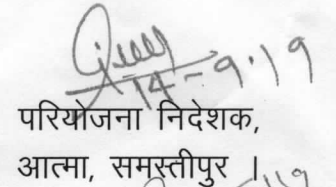 14-9-19
परियोजना निदेशक,
आत्मा, समस्तीपुर ।